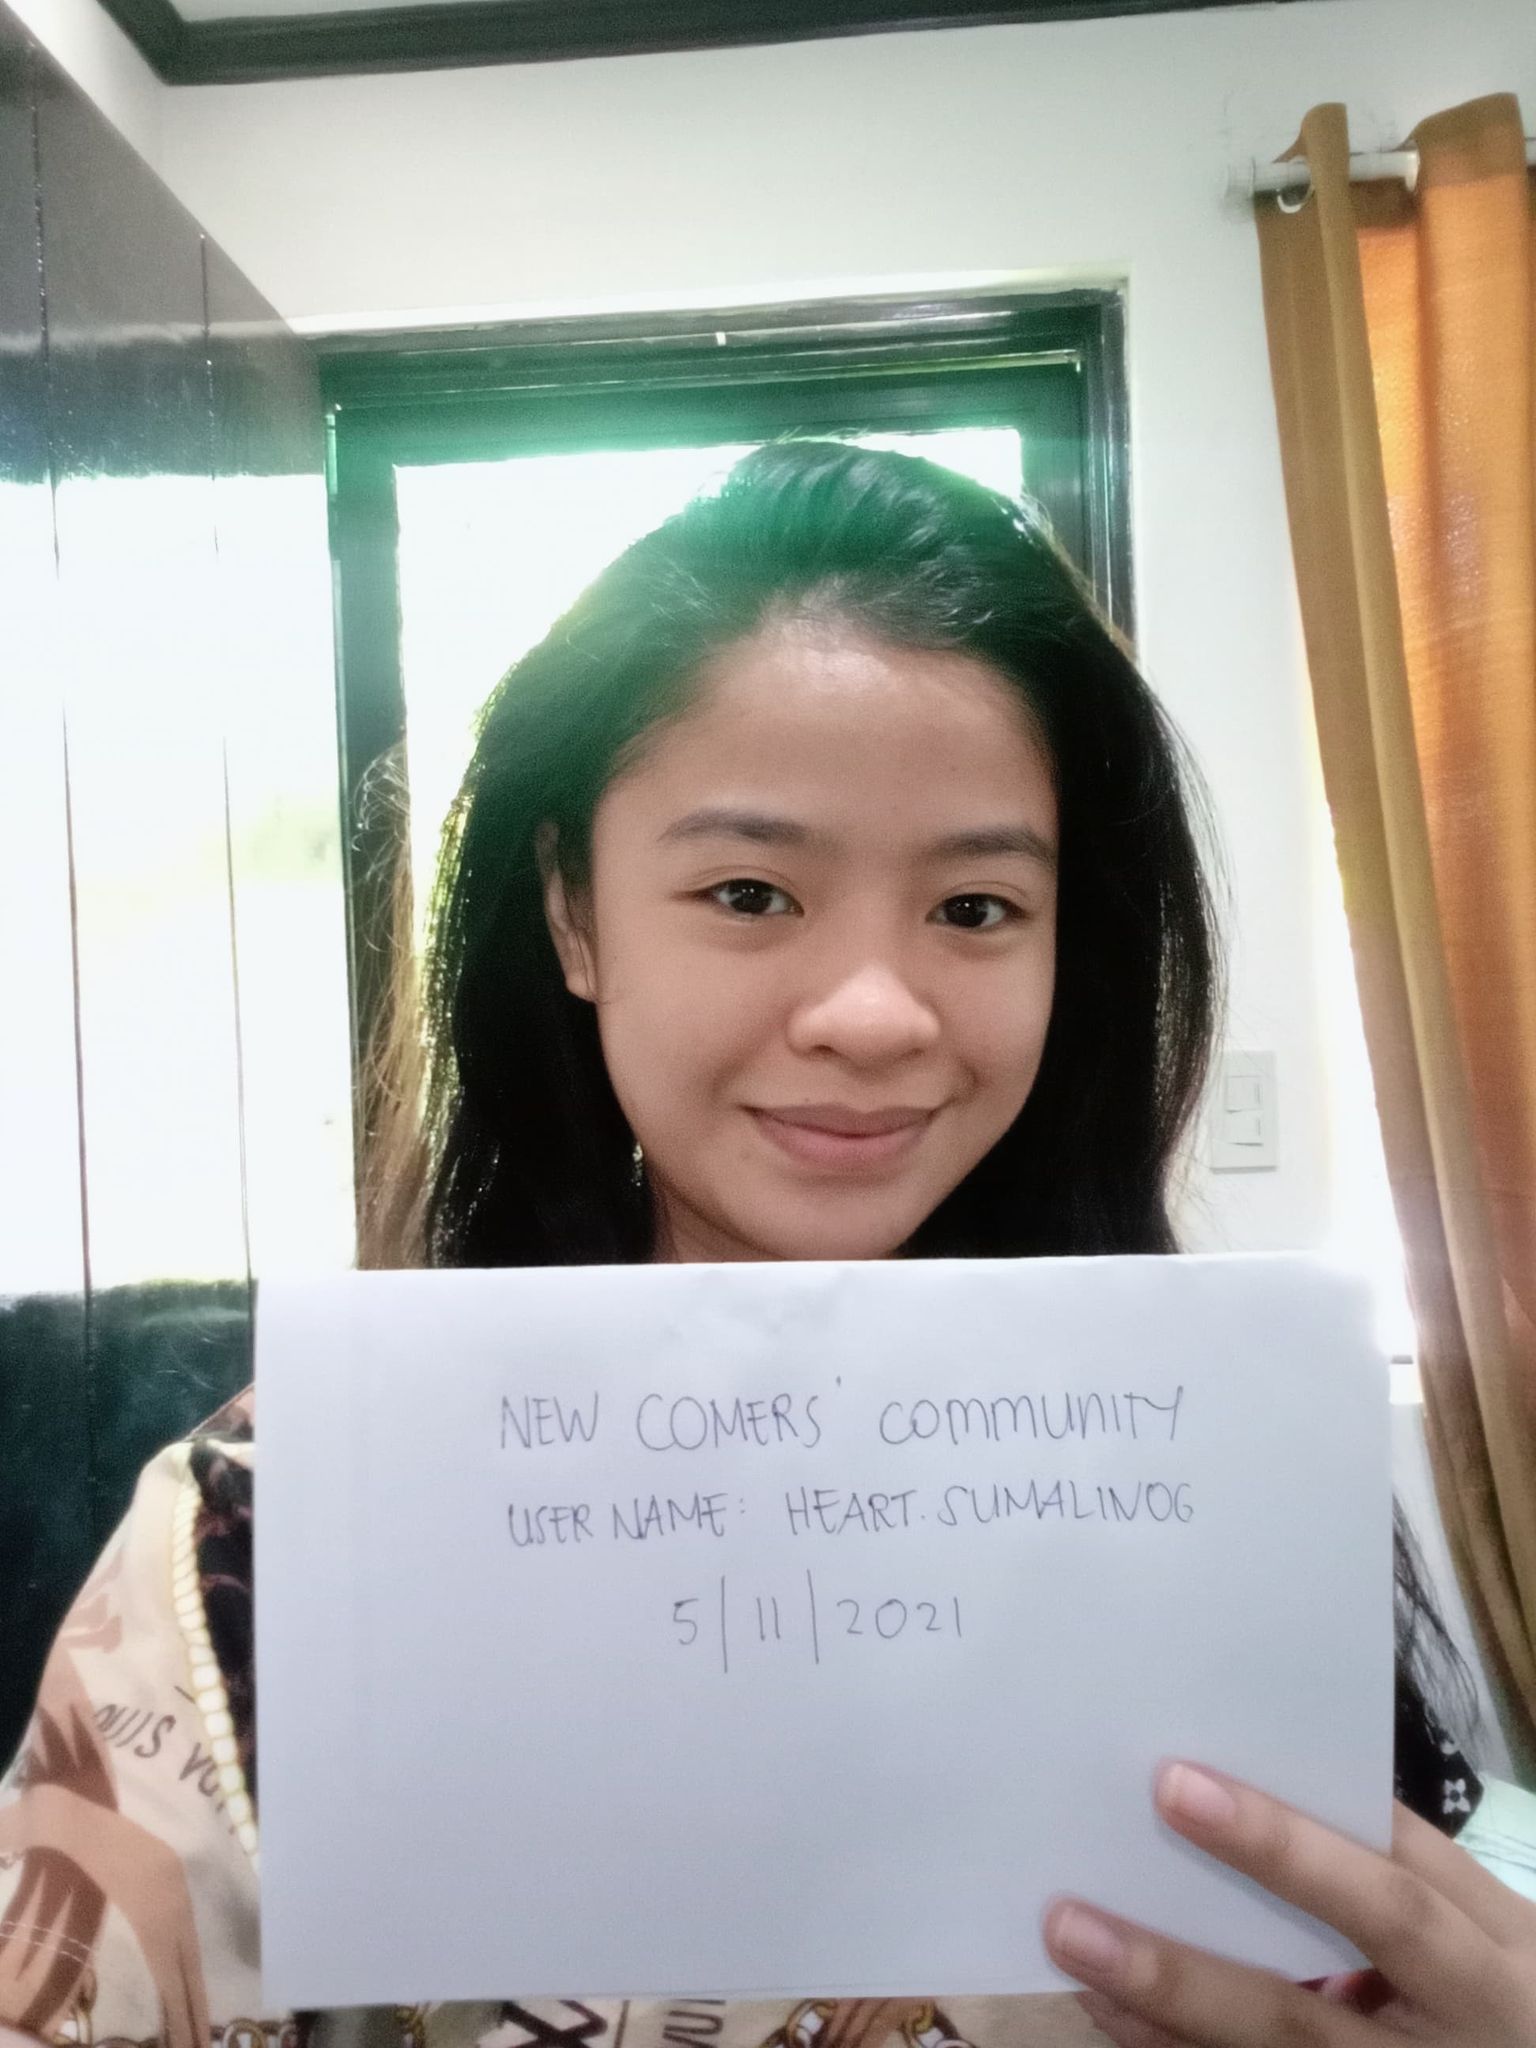 NEW COMERS' COMMUNITY
USER NAME: HEART.SUMALINOG
5/11/2021